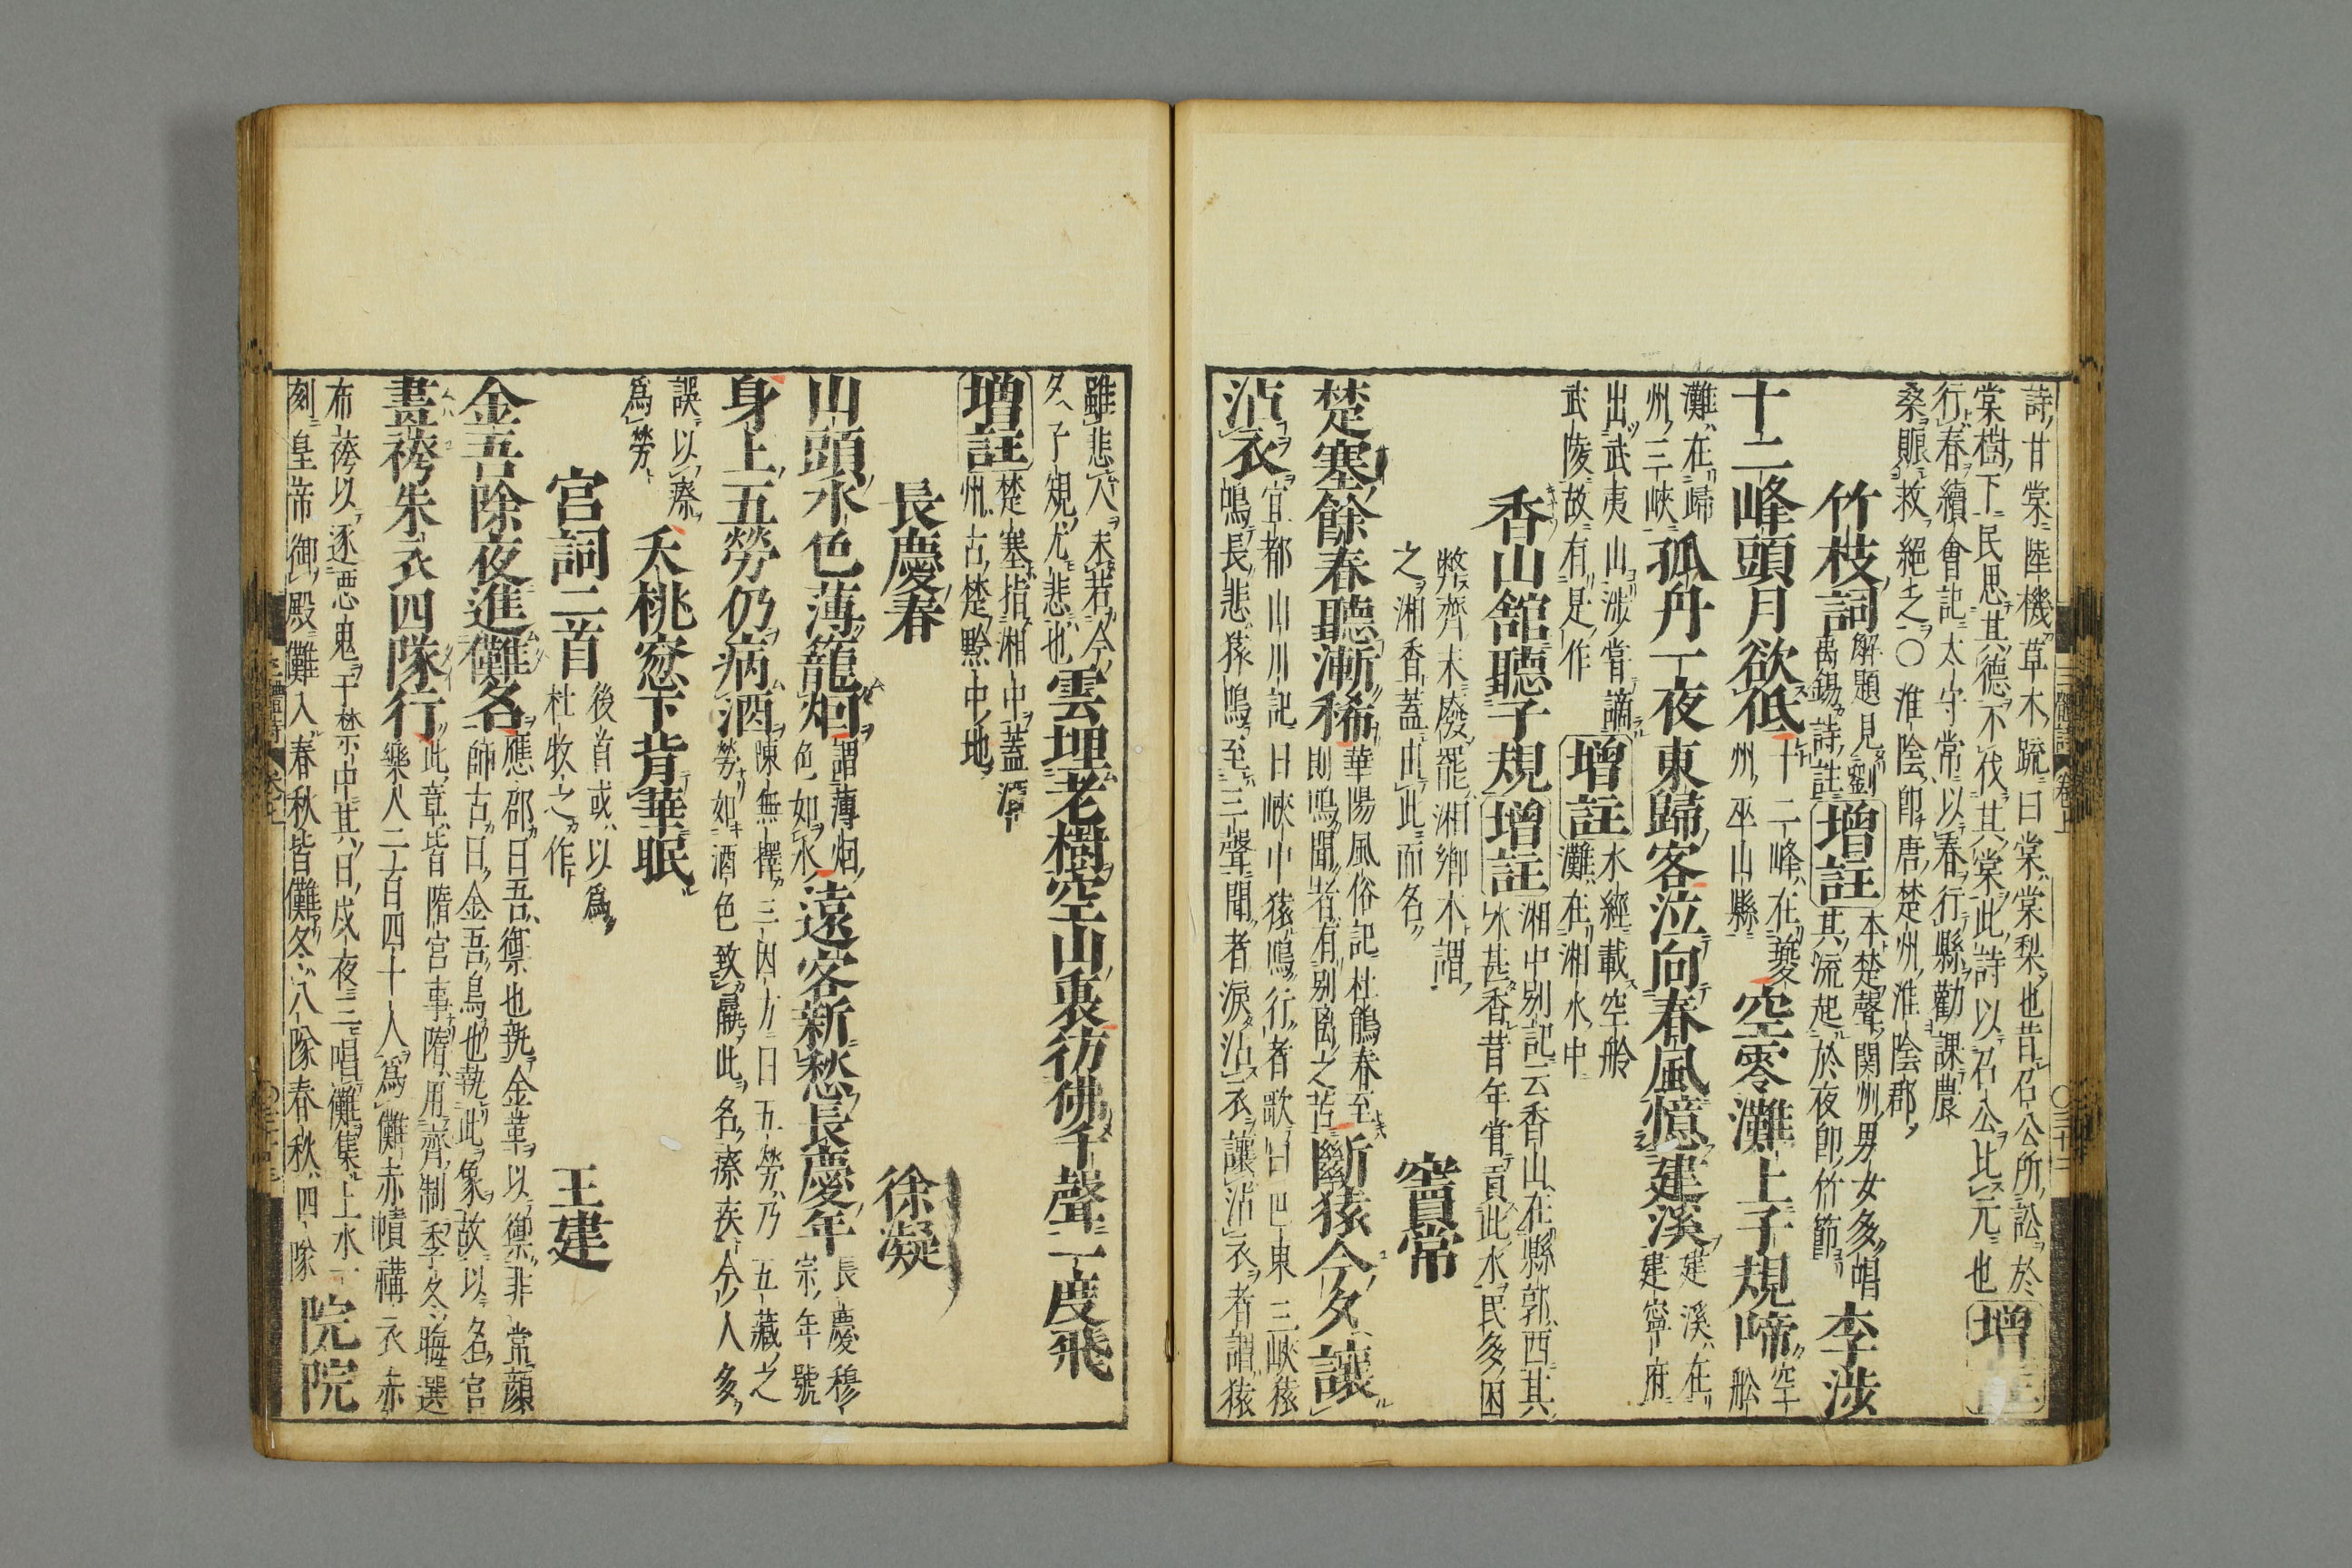 詩甘棠陸機草木疏曰棠棠梨也昔召公所訟於
棠樹下民思其德不伐其棠此詩以召公比元也增註
行春續會記太守常以春行縣勸課農
桑賑救絕乏〇淮陰卽唐楚州淮陰郡
竹枝詞解題見劉禹錫詩註增註本楚聲関洲男女多唱其流起於夜郎竹節李涉
十二峰頭月欲低十二峰在夔州巫山縣空零灘上子規啼空舲
灘在歸州三峽孤舟一夜東歸客泣向春風憶建溪建溪在建寧府
出武夷山涉嘗謫武陵故有是作增註水經載空舲灘在湘水中
香山舘聽子規增註湘中别記云香山在縣郭西其水甚香昔年嘗貢此水民多困
弊齊末廢罷湘鄉本謂之湘香蓋由此而名竇常
楚塞餘春聽漸稀華陽風俗記杜鵑春至則鳴聞者有别离之苦斷猿今夕讓
沾衣宜都山川記曰峽中猿鳴行者歌曰巴東三峽猿鳴長悲猿鳴至三聲聞者淚沾衣讓沾衣者謂猿
雖悲人未若今夕子規尤悲也雲埋老樹空山裏彷彿千聲一度飛
增註楚塞指湘中蓋潭州古楚黔中地
長慶春徐凝
山頭水色薄籠烟謂薄烟色如水遠客新愁長慶年長慶穆宗年號
身上五勞仍病酒陳無擇三因方曰五勞乃五藏之勞如酒色致羸此名瘵疾今人多
誤以瘵爲勞夭桃窓下背華眠
宮詞二首後首或以爲杜牧之作王建
金吾除夜進儺名應邵曰吾禦也執金革以禦非常顔師古曰金吾鳥也執此象故以名官
畫袴朱衣四隊行此章皆隋宮事隋用齊制季冬晦選樂人二百四十人爲儺赤幘褠衣赤
布袴以逐惡鬼于禁中其日戌夜三唱儺集上水一
刻皇帝御殿儺入春秋皆儺冬八隊春秋四隊院院
三體詩卷上〇三十二
三體詩